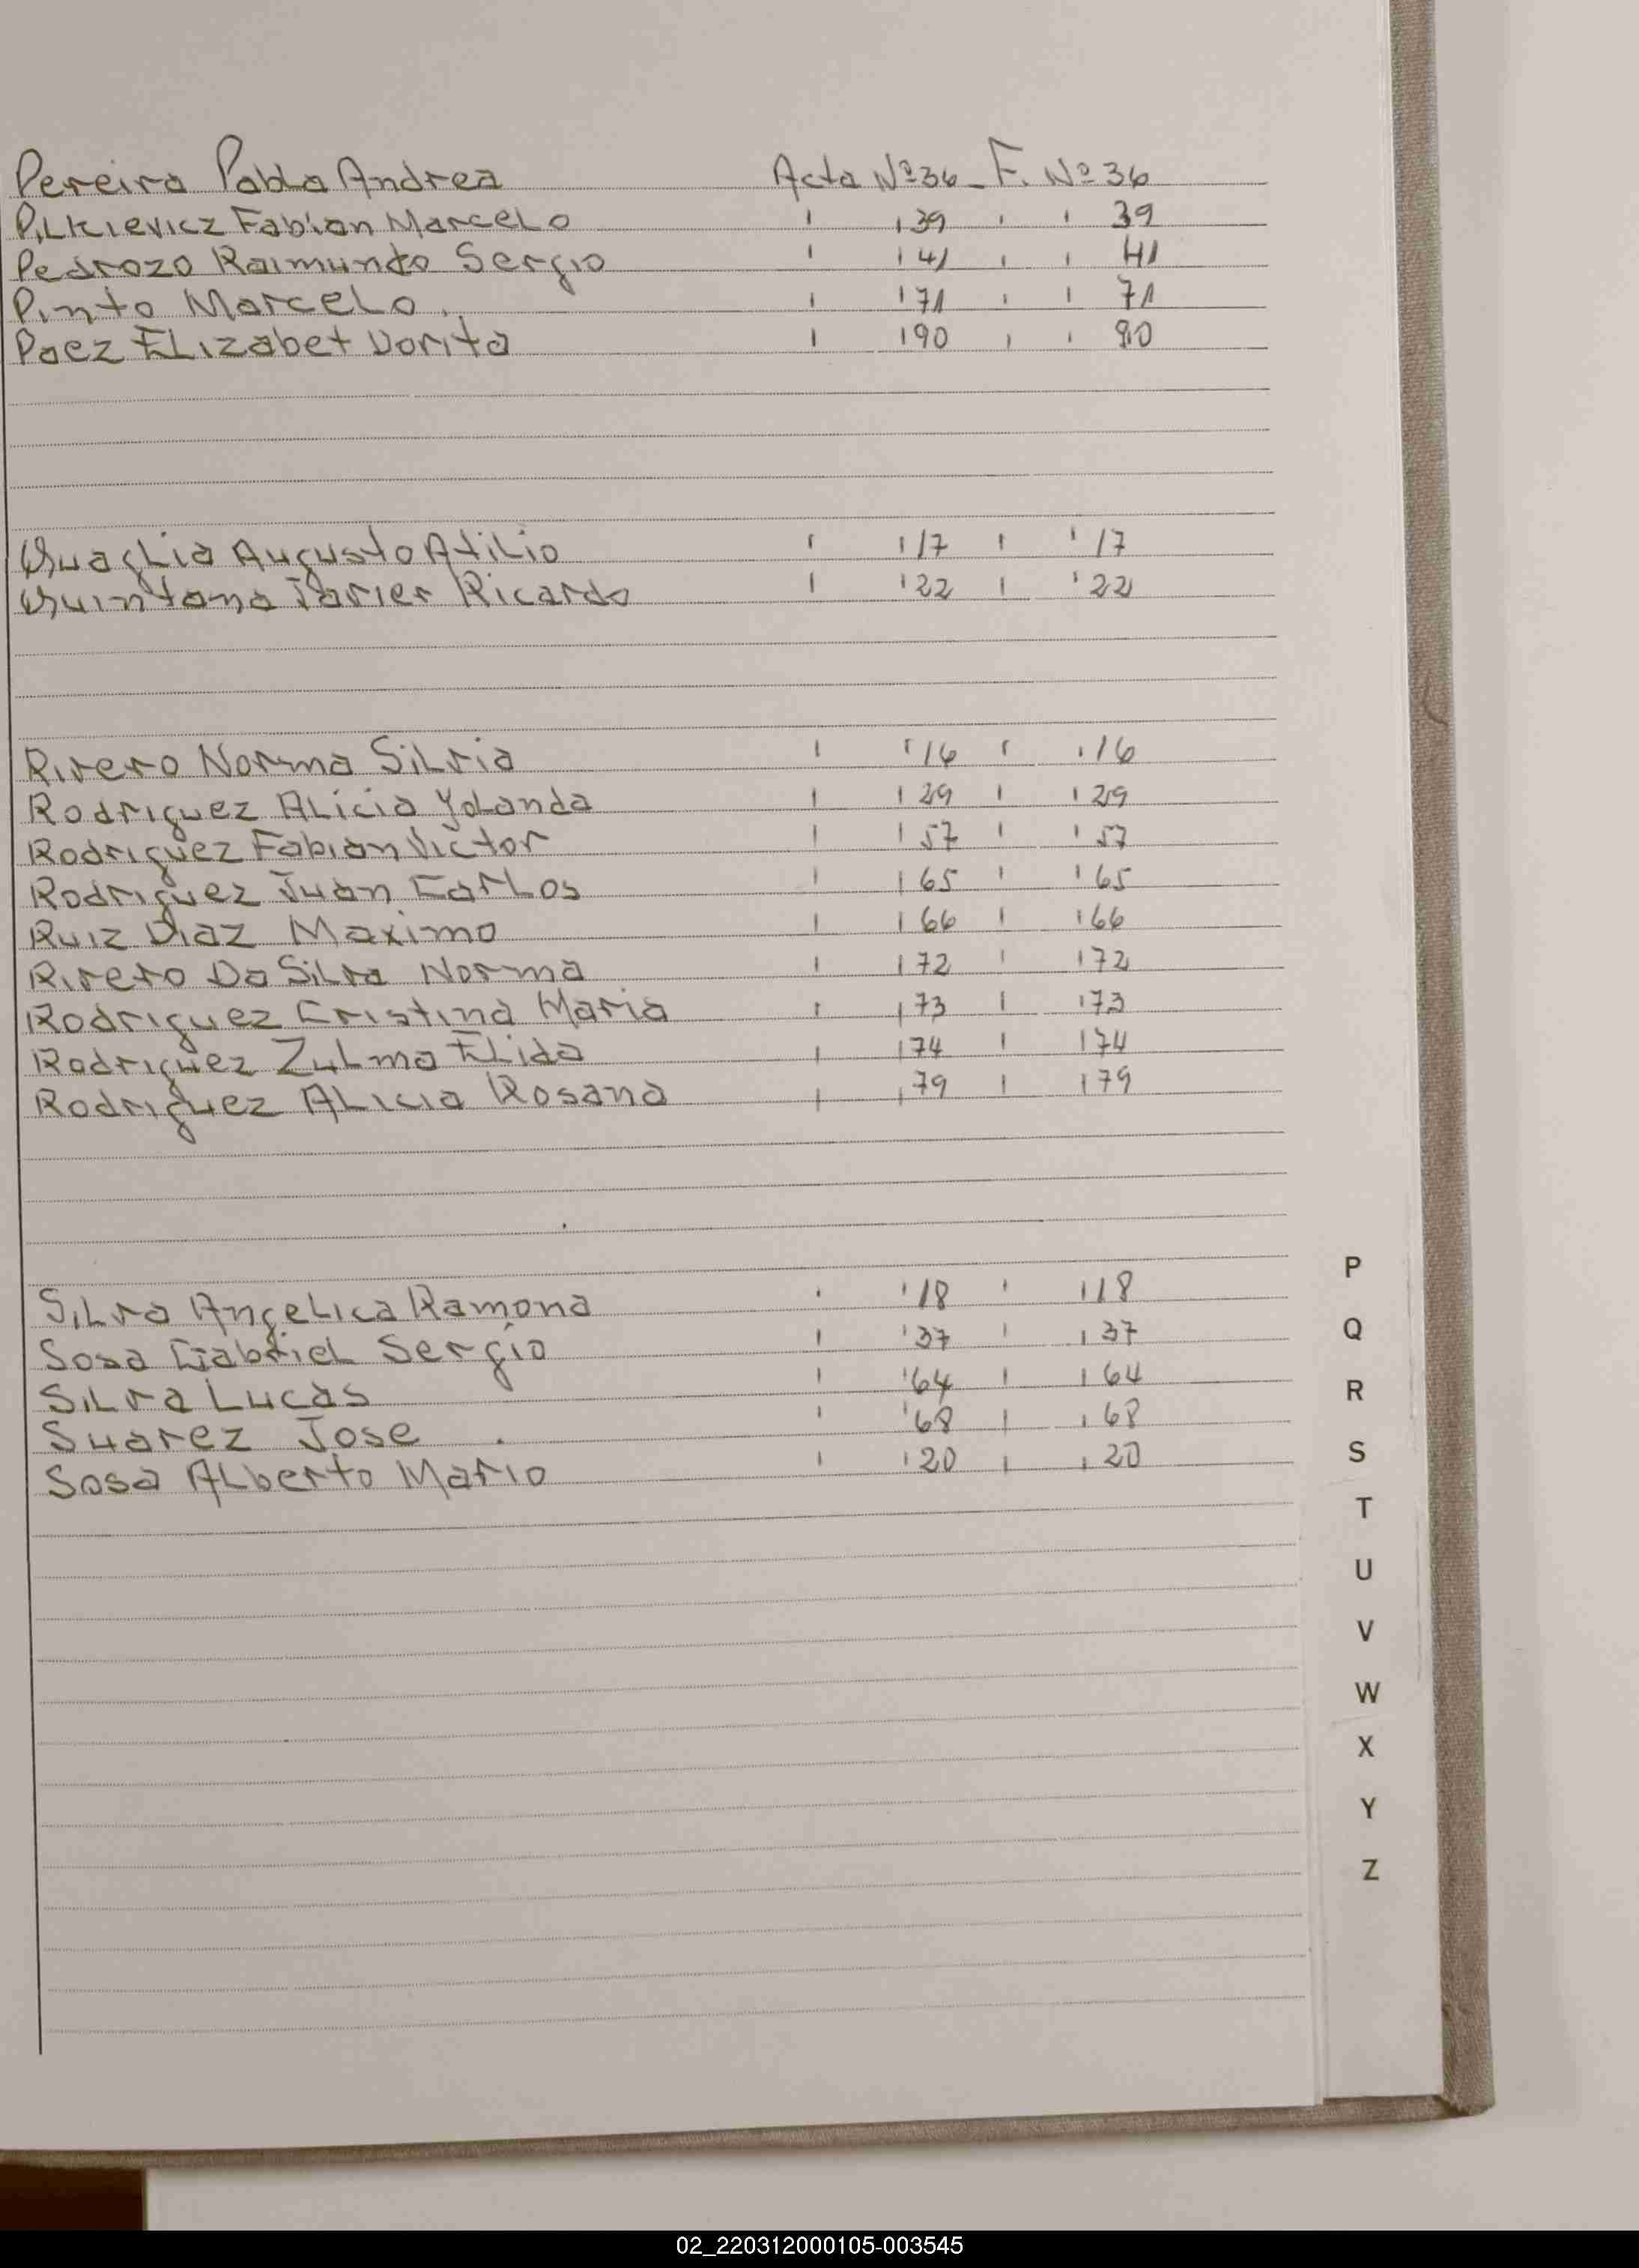 Pereira Pabla Andrea Acta Nº 36 - F. Nº 36
Pilkievicz Fabian Marcelo ' ' 39 ' ' 39
Pedrozo Raimundo Sergio ' ' 41 ' ' 41
Pinto Marcelo. ' ' 71 ' ' 71
Paez Elizabet Dorita ' ' 90 ' ' 90
Quaglia Augusto Atilio ' ' 17 ' ' 17
Quintana Javier Ricardo ' ' 22 ' ' 22
Rivero Norma Silvia ' ' 16 ' ' 16
Rodriguez Alicia Yolanda ' ' 29 ' ' 29
Rodriguez Fabian Victor ' ' 57 ' ' 57
Rodriguez Juan Carlos ' ' 65 ' ' 65
Ruiz Diaz Maximo ' ' 66 ' ' 66
Rivero Da Silva Norma ' ' 72 ' ' 72
Rodriguez Cristina Maria ' ' 73 ' ' 73
Rodriguez Zulma Elida ' ' 74 ' ' 74
Rodriguez Alicia Rosana ' ' 79 ' ' 79
Silva Angelica Ramona ' ' 18 ' ' 18
Sosa Gabriel Sergio ' ' 37 ' ' 37
Silva Lucas ' ' 64 ' ' 64
Suarez Jose ' ' 68 ' ' 68
Sosa Alberto Mario ' ' 20 ' ' 20
P
Q
R
S
T
U
V
W
X
Y
Z
02_220312000105-003545